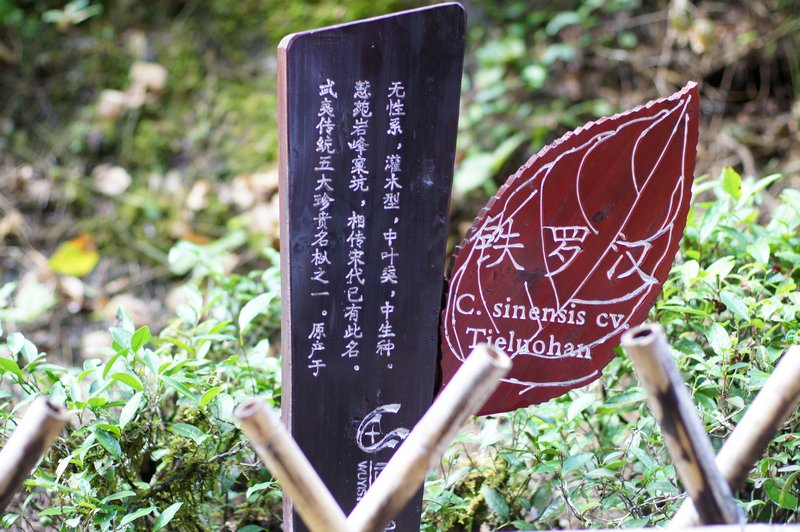 武夷传统五大珍贵名枞之一。原产于
慧苑岩峰窠坑，相传宋代已有此名。
无性系，灌木型，中叶类，中生种。
铁罗汉
C. sinensis cv.
Tieluohan